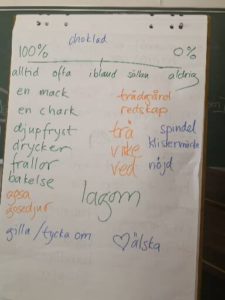 choklad
100% 0%
alltid ofta ibland sällan aldrig
en mack
en chark
djupfryst
drycker
frallor
bakelse
apsa
gosedjur
trädgård
redskap
trä
ved
spindel
nöjd
lagom
gilla / tycka om
♡ älska